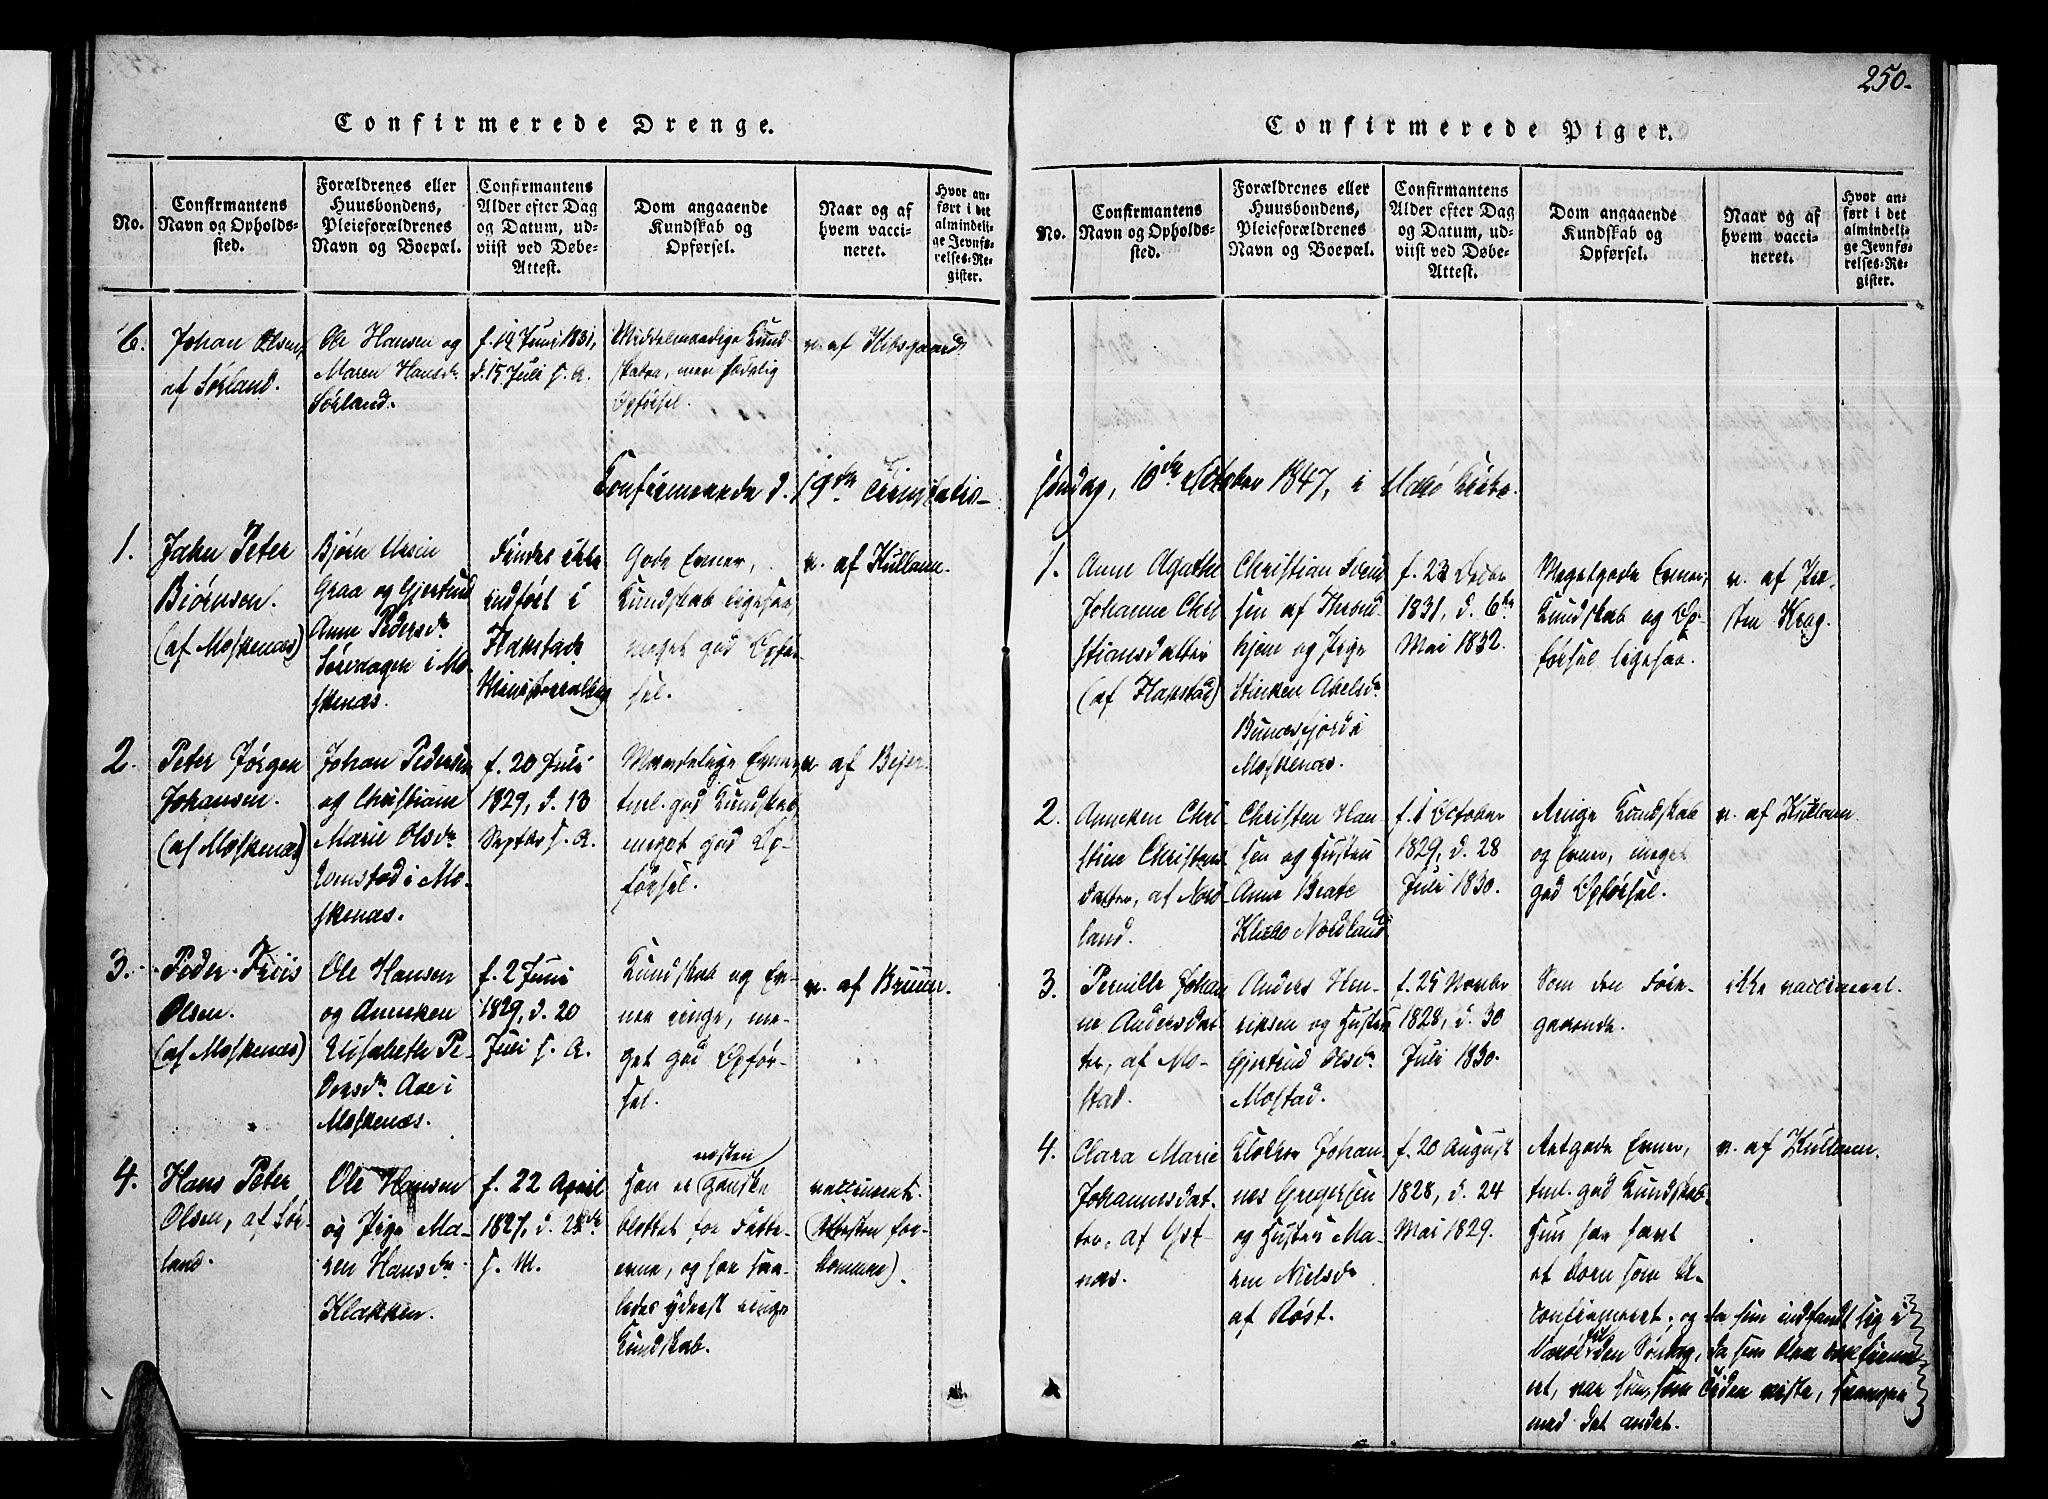 250.
Confirmerede Drenge.
No.
Confirmantens
Navn og Opholds-
sted.
Forældrenes eller
Huusbondens,
Pleieforældrenes
Navn og Boepæl.
Confirmantens
Alder efter Dag
og Datum, ud-
viist ved Døbe-
Attest.
Dom angaaende
Kundskab og
Opførsel.
Naar og af
hvem vacci-
neret.
Hvor an-
ført i det
almindeli-
ge Jevnfø-
relses-Re-
gister.
6.
Johan Olsen,
af Sörland.
Ole Hansen og
Maren Hansdr
Sörland.
f. 12 Juni 1831,
d. 15 Juli s. A.
Middelmaadige Kund-
skaber, men sædelig
Opförsel.
v. af Kibsgaard.
Confirmerede d. 19de Trinitatis-
1.
John Peter
Biörnsen.
(af Moskenæs)
Bjørn Ursin
Graa og Gjertrud
Anne Pedersdr
Sörvaagen i Mo-
skenæs.
Findes ikke
indfört i
Flakstads
Ministerialbog
Gode Evner,
Kundskab ligesaa,
meget god Opför-
sel.
v. af Kullam.
2.
Peter Jörgen
Johansen.
(af Moskenæs)
Johan Pedersen
og Christiane
Marie Olsdr
Ramstad i Mo-
skenæs.
f. 20 Juli
1829, d. 13
Septbr s. A.
Maadelige Evner,
tml. god Kundskab,
meget god Op-
försel.
v. af Bejer.
3.
Peder Friis
Olsen.
(af Moskenæs)
Ole Hansen
og Anneken
Elisabeth Pe-
dersdr Aae i
Moskenæs.
f. 2 Juni
1829, d. 20
Juli s. A.
Kundskab og Ev-
ner ringe, me-
get god Opför-
sel.
v. af Bruun.
4.
Hans Peter
Olsen, af Sör-
land.
Ole Hansen
og Pige Ma-
ren Hansdr
Klakken.
f. 22 April
1827, d. 28de
s. M.
næsten
Han er ganske
blottet for Fatte-
evne, og har saa-
ledes yderst ringe
Kundskab.
vaccineret.
(Attesten for-
kommen).
Confirmerede Piger.
No.
Confirmantens
Navn og Opholds-
sted.
Forældrenes eller
Huusbondens,
Pleieforældrenes
Navn og Boepæl.
Confirmantens
Alder efter Dag
og Datum, ud-
viist ved Døbe-
Attest.
Dom angaaende
Kundskab og
Opførsel.
Naar og af
hvem vacci-
neret.
Hvor an-
ført i det
almindeli-
ge Jevnfø-
relses-Re-
gister.
söndag, 10de October 1847, i Værö Kirke.
1.
Anne Agathe
Johanne Chri-
stiansdatter
(af Flakstad)
Christian Svend-
sen af Thrond-
hjem og Pige
Sinken Abelsdr
Bunesfjord i
Moskenæs.
f. 23 Decbr
1831, d. 6te
Mai 1832.
Megetgode Evner,
Kundskab og Op-
försel ligesaa.
v. af Præ-
sten Krag.
2.
Anneken Chri-
stine Christens
datter, af Nord-
land.
Christen Han-
sen og Hustru
Anne Beate
Nordland
f. 1 October
1829, d. 28
Juli 1830.
Ringe Kundskab
og Evner, meget
god Opförsel.
v. af Kullam.
3.
Pernille Johan-
ne Andersdat-
ter, af Mo-
stad.
Anders Hen-
riksen og Hustru
Gjertrud Olsdr
Mostad.
f. 25 Novbr
1828, d. 30
Juli 1830.
Som den Fore-
gaaende.
ikke vaccineret.
4.
Clara Marie
Johannesdat-
ter, af Yst-
næs.
Klokker Johan-
nes Gregersen
og Hustru Ma-
ren Nielsdr
af Röst.
f. 20 August
1828, d. 24
Mai 1829.
Retgode Evner,
tml. god Kundskab.
Hun har havt
et Barn som U-
confirmeret; og da hun indfandt sig i
Værö til den Söndag, da hun blev confirme-
ret, var hun, som Tiden viste, svanger
med det andet.
v. af Kullam.